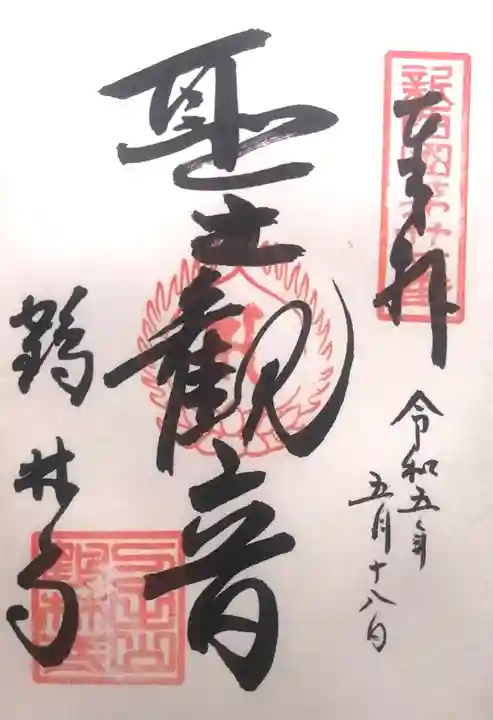 奉拝
令和五年
五月十八日
聖観音
鶴林寺